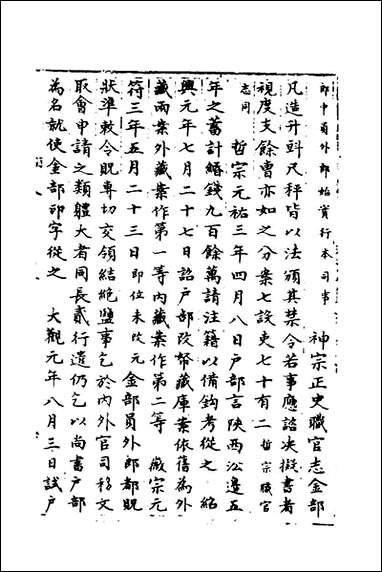 郎中員外郎始實行本司事
神宗正史職官志金部
凡造升斗尺秤皆以法頒其禁令若事應諮決擬書者
視度支餘曹亦如之分案七設吏七十有二哲宗職官
志同
哲宗元祐三年四月八日户部言陝西沿邊五
年之蓄計緡錢九百餘萬請注籍以備鈎考從之
紹
興元年七月二十七日詔户部改幣藏庫案依舊為外
藏兩案外藏案作第一等内藏案作第二等
徽宗元
符三年五月二十三日即位未改元金部員外郎都貺
狀準敕令貺專切交領結絶盬事乞於内外官司移文
取會申請之類軆大者同長貳行遣仍乞以尚書户部
為名就使金部印字從之
大觀元年八月三日試户